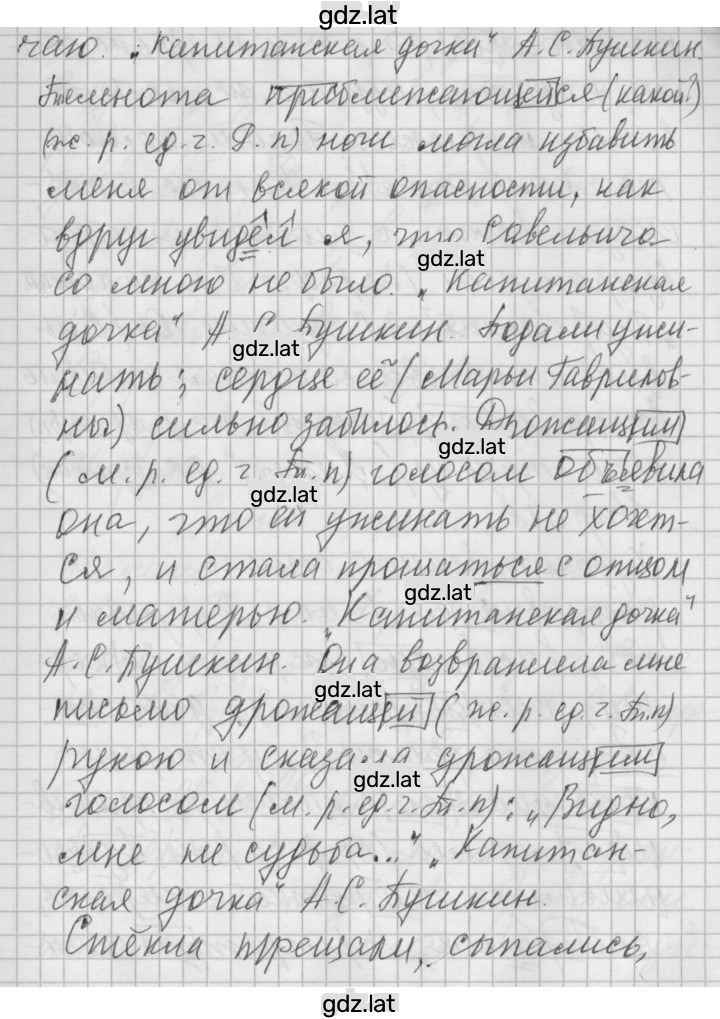 gdz.lat
чаю. „Капитанская дочка" А.С.Пушкин.
Темнота приближающейся (какой?)
(ж. р. ед. ч. Р. п) ночи могла избавить
меня от всякой опасности, как
вдруг увидел я, что Савельича
gdz.lat
со мною не было. „Капитанская
дочка" А. С. Пушкин. Подали ужи-
gdz.lat
нать; сердце её (Марьи Гаврилов-
ны) сильно забилось. Дрожащим
gdz.lat
(м. р. ед. ч. Тв. п) голосом объявила
gdz.lat
она, что ей ужинать не хочет-
ся, и стала прощаться с отцом
gdz.lat
и матерью. „Капитанская дочка"
А.С.Пушкин. Она возвратила мне
gdz.lat
письмо дрожащей (ж. р. ед. ч. Тв.п)
рукою и сказала дрожащим
gdz.lat
голосом (м. р. ед. ч. Тв. п): „Видно,
мне не судьба..." „Капитан-
ская дочка" А.С. Пушкин.
Стёкла трещали, сыпались,
gdz.lat